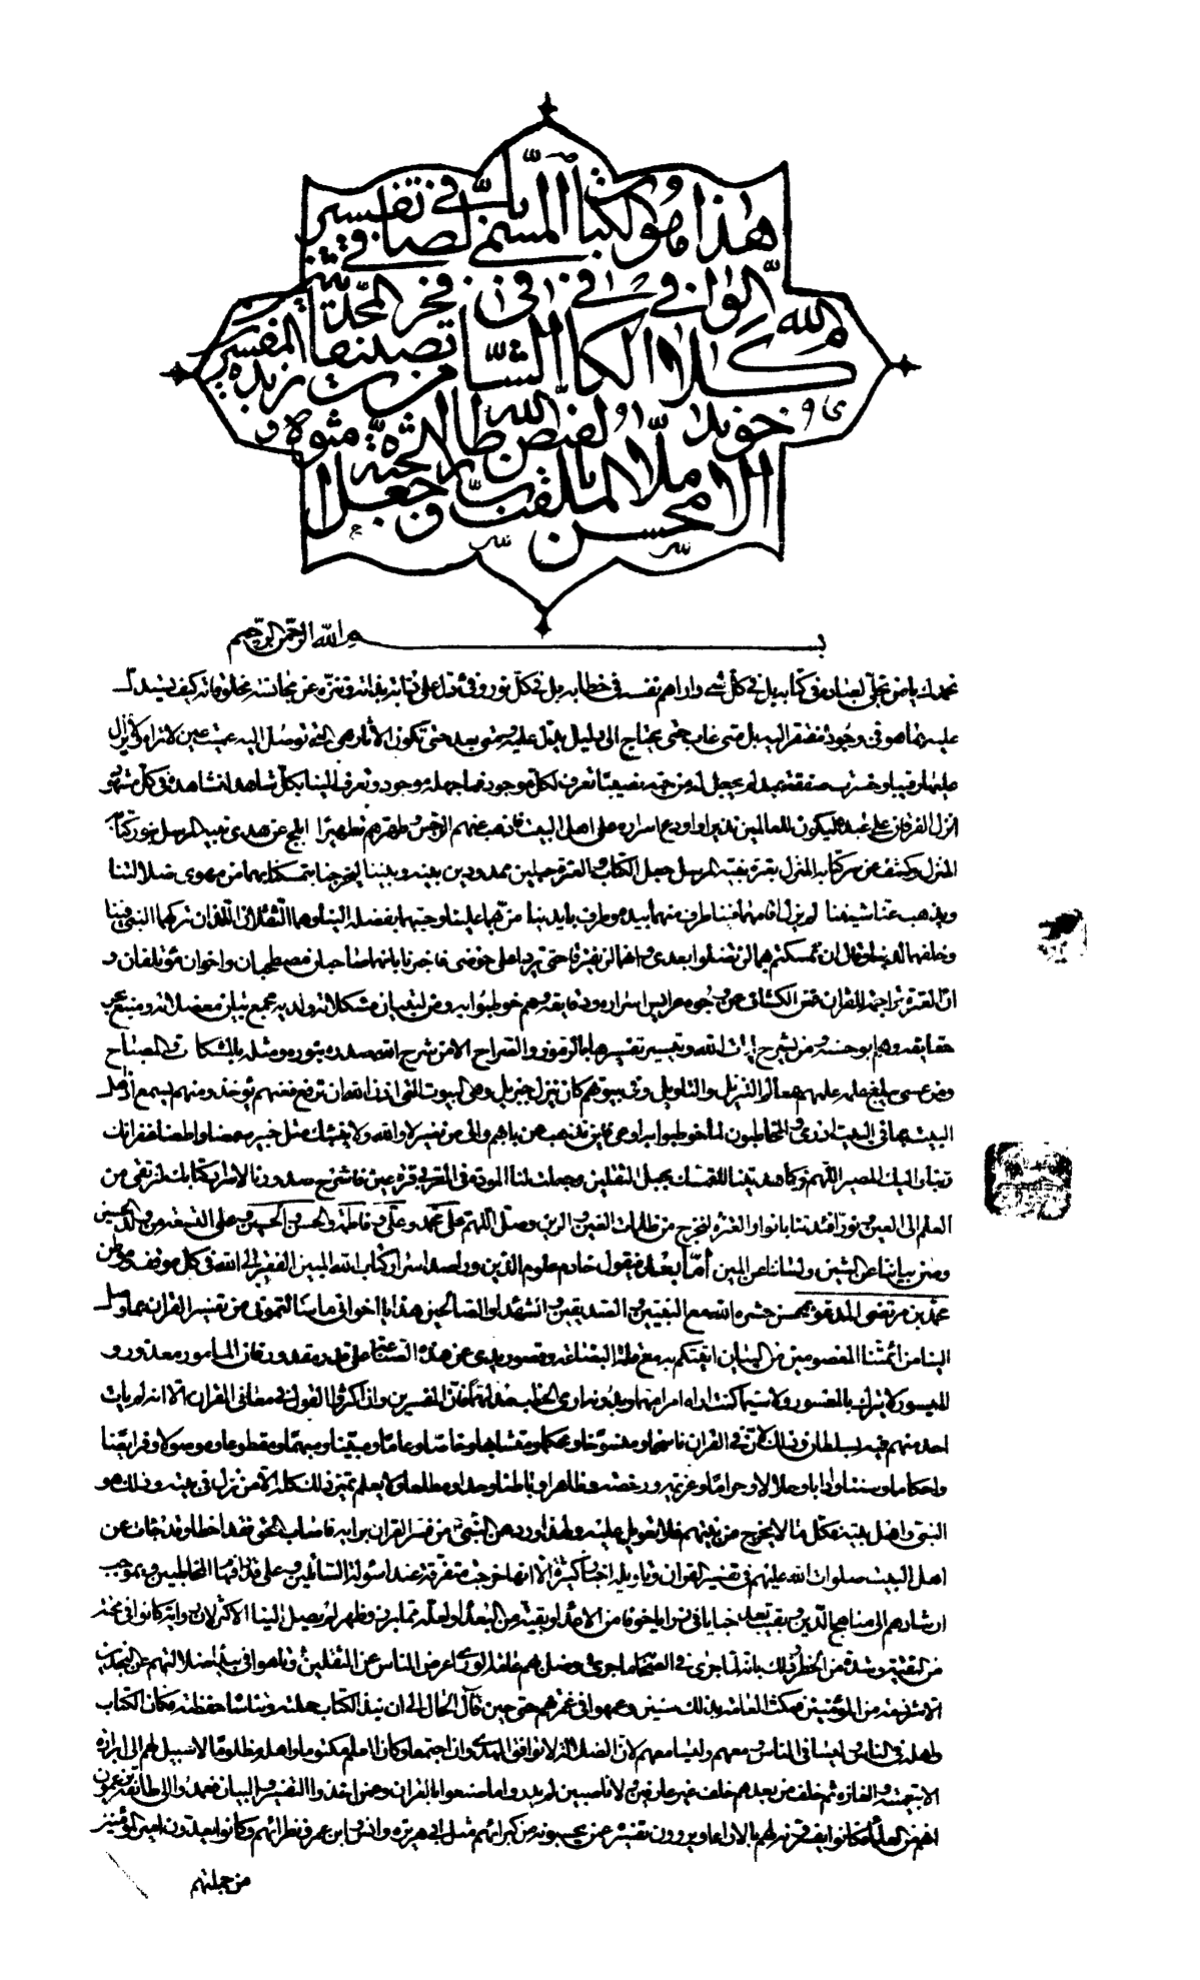 هذا هو الكتاب المسمى بالصافي في تفسير
كلام الله الوافي الكافي الشافي من تصنيفات فخر المحدثين زبدة المفسرين
الآخوند ملا محسن الملقب بالفيض طاب الله ثراه وجعل الجنة مثواه
بسم الله الرحمن الرحيم
نحمدك يا من تجلى لعباده في كتابه بل في كل شيء واراهم نفسه في خطابه بل في كل نور وفيء دل على ذاته بذاته وتنزه عن مجانسة مخلوقاته كيف يستدل
عليه بما هو في وجوده مفتقر اليه بل متى غاب حتى يحتاج الى دليل يدل عليه ومتى بعد حتى تكون الآثار هي التي توصل اليه عميت عين لا تراه ولا يزال
عليها رقيبا وخسرت صفقة عبد لم يجعل له من حبه نصيبا تعرف لكل موجود فما جهله موجود وتعرف الينا بكل شاهد لنشاهده في كل مشهود
انزل الفرقان على عبده ليكون للعالمين نذيرا واودع اسراره على اهل البيت فاذهب عنهم الرجس وطهرهم تطهيرا ابلج عن هدى نبيه المرسل بنور كتابه
المنزل وكشف عن سر كتابه المنزل بعترة نبيه المرسل جعل الكتاب والعترة حبلين ممدودين بينه وبيننا ليخرجنا بتمسكنا بهما من مهوى ضلالتنا
ويذهب عنا شيننا لم يزل اقامهما فينا طرف منهما بيده وطرف بايدينا من بهما علينا وحببهما بفضله الينا وهما الثقلان اللذان تركهما النبي فينا
وخلفهما لدينا وقال ان تمسكتم بهما لن تضلوا بعدي وانهما لن يفترقا حتى يردا علي حوضي فاخبرنا بانهما صاحبان مصطحبان واخوان مؤتلفان و
ان العترة تراجمة للقران فمن الكشاف عن وجوه عرايس اسراره ودقايقه وهم خوطبوا به ومن لتبيان مشكلاته ولديهم مجمع بيان معضلاته ومنبع بحر
حقايقه وهم ابو حسنه ومن يشرح آيات الله وتيسير تفسيرها بالرموز والصراح الا من شرح الله صدره بنوره ومثله بالمشكاة والمصباح
ومن عسى يبلغ علمه علمهم بمعالم التنزيل والتاويل وفي بيوتهم كان ينزل جبريل وهي البيوت التي اذن الله ان ترفع فعنهم يؤخذ ومنهم يسمع اذ اهل
البيت بما في البيت ادرى والمخاطبون لما خوطبوا به اوعى فاين نذهب عن بابهم والى من نصير لا والله ولا ينبئك مثل خبير سمعنا واطعنا غفرانك
ربنا واليك المصير اللهم فكما هديتنا للتمسك بحبل الثقلين وجعلت لنا المودة في القربى قرة عين فاشرح صدورنا لاسرار كتابك لنرتقي من
العلم الى العين ونور افئدتنا بانوار العترة لنخرج من ظلمات الغين والرين وصل اللهم على محمد وعلي وفاطمة والحسن والحسين وعلى التسعة من ولد الحسين
وصن بياننا عن الشين ولساننا عن المين أما بعد فيقول خادم علوم الدين وراصد اسرار كتاب الله المبين الفقير الى الله في كل موقف وموطن
محمد بن مرتضى المدعو بمحسن حشره الله مع النبيين والصديقين والشهداء والصالحين هذا يا اخواني ما سألتموني من تفسير القران بما وصل
الينا من ائمتنا المعصومين من البيان اتيتكم به مع قلة البضاعة وقصور يدي عن هذه الصناعة على قدر مقدور فان المأمور معذور و
الميسور لا يترك بالمعسور ولا سيما كنت اراه امرا مهما وبدونه ارى الخطب مدلهما فان المفسرين وان اكثروا القول في معاني القران الا انه لم يات
احد منهم فيه بسلطان وذلك لان في القران ناسخا ومنسوخا ومحكما ومتشابها وخاصا وعاما ومبينا ومبهما ومقطوعا وموصولا وفرايضا
واحكاما وسننا وادابا وحلالا وحراما وعزيمة ورخصة وظاهرا وباطنا وحدا ومطلعا ولا يعلم تمييز ذلك كله الا من نزل في بيته وذلك هو
النبي واهل بيته فكل ما لا يخرج من بيتهم فلا تعويل عليه ولهذا ورد عن النبي من فسر القران برأيه فاصاب الحق فقد اخطا وقد جاءت عن
اهل البيت صلوات الله عليهم في تفسير القران وتاويله اخبار كثيرة الا انها خرجت متفرقة عند اسولة السائلين وعلى قدر افهام المخاطبين وبموجب
ارشادهم الى مناهج الدين وبقيت بعد خبايا في زوايا خوفا من الاعداء وتقية من البعداء ولعله مما برز وظهر لم يصل الينا الاكثر لان رواته كانوا في محنة
من التقية وشدة من الخطر وذلك بانه لما جرى في الصحابة ما جرى وضل بهم عامة الورى اعرض الناس عن الثقلين وتاهوا في بيداء ضلالتهم عن النجدين
الا شرذمة من المؤمنين فمكث العامة بذلك سنين وعمهوا في غمرتهم حتى حين فآل الحال الى ان نبذ الكتاب حملته وتناساه حفظته فكان الكتاب
واهله في الناس وليسا في الناس ومعهم وليسا معهم لان الضلالة لا توافق الهدى وان اجتمعا وكان العلم مكتوما واهله مظلوما لا سبيل لهم الى ابرازه
الا بتعميته والغازه ثم خلف من بعدهم خلف غير عارفين ولا ناصبين لم يدروا ما صنعوا بالقران وعمن اخذوا التفسير والبيان فعمدوا الى طائفة يزعمون
انهم من العلماء فكانوا يفسرونه لهم بالاراء ويروون تفسيره عمن يحسبونه من كبرائهم مثل ابي هريرة وانس وابن عمر ونظرائهم وكانوا يعدون امير المؤمنين
من جملتهم